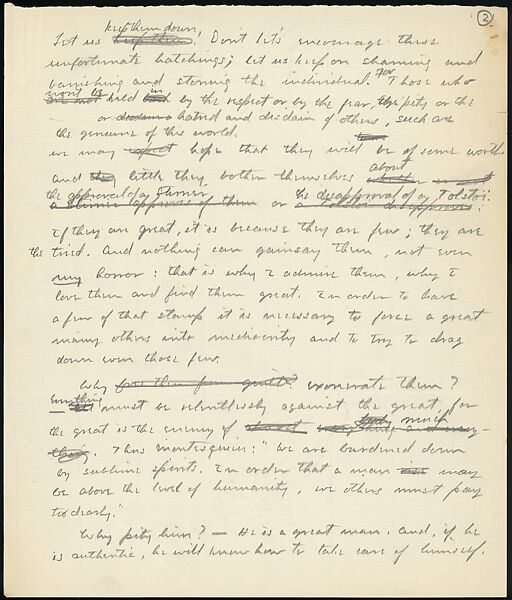 2
keep them down
Let us keep them! Don't let's encourage these
unfortunate hatchings; let us keep on shaming and
banishing and stoning the individual. For Those who
won't be are not held in back by the respect or by the fear, the pity or the
or disdain hatred and disdain of others, such are
the geniuses of this world.
we may expect hope that they will be of some worth
and how little they bother themselves about
the approval of a Sterner or the disapproval of a Tolstoi.
If they are great, it is because they are few; they are
the tried. And nothing can gainsay them, not even
my horror: that is why I admire them, why I
love them and find them great. In order to have
a few of that stamp it is necessary to force a great
many others into mediocrity and to try to drag
down even those few.
Why exonerate them?
Everything must be relentlessly against the great, for
the great is the enemy of too much
. Thus Montesquieu: "We are burdened down
by sublime spirits. In order that a man may
be above the level of humanity, we others must pay
too dearly."
Why pity him? — He is a great man. And, if he
is authentic, he will know how to take care of himself.